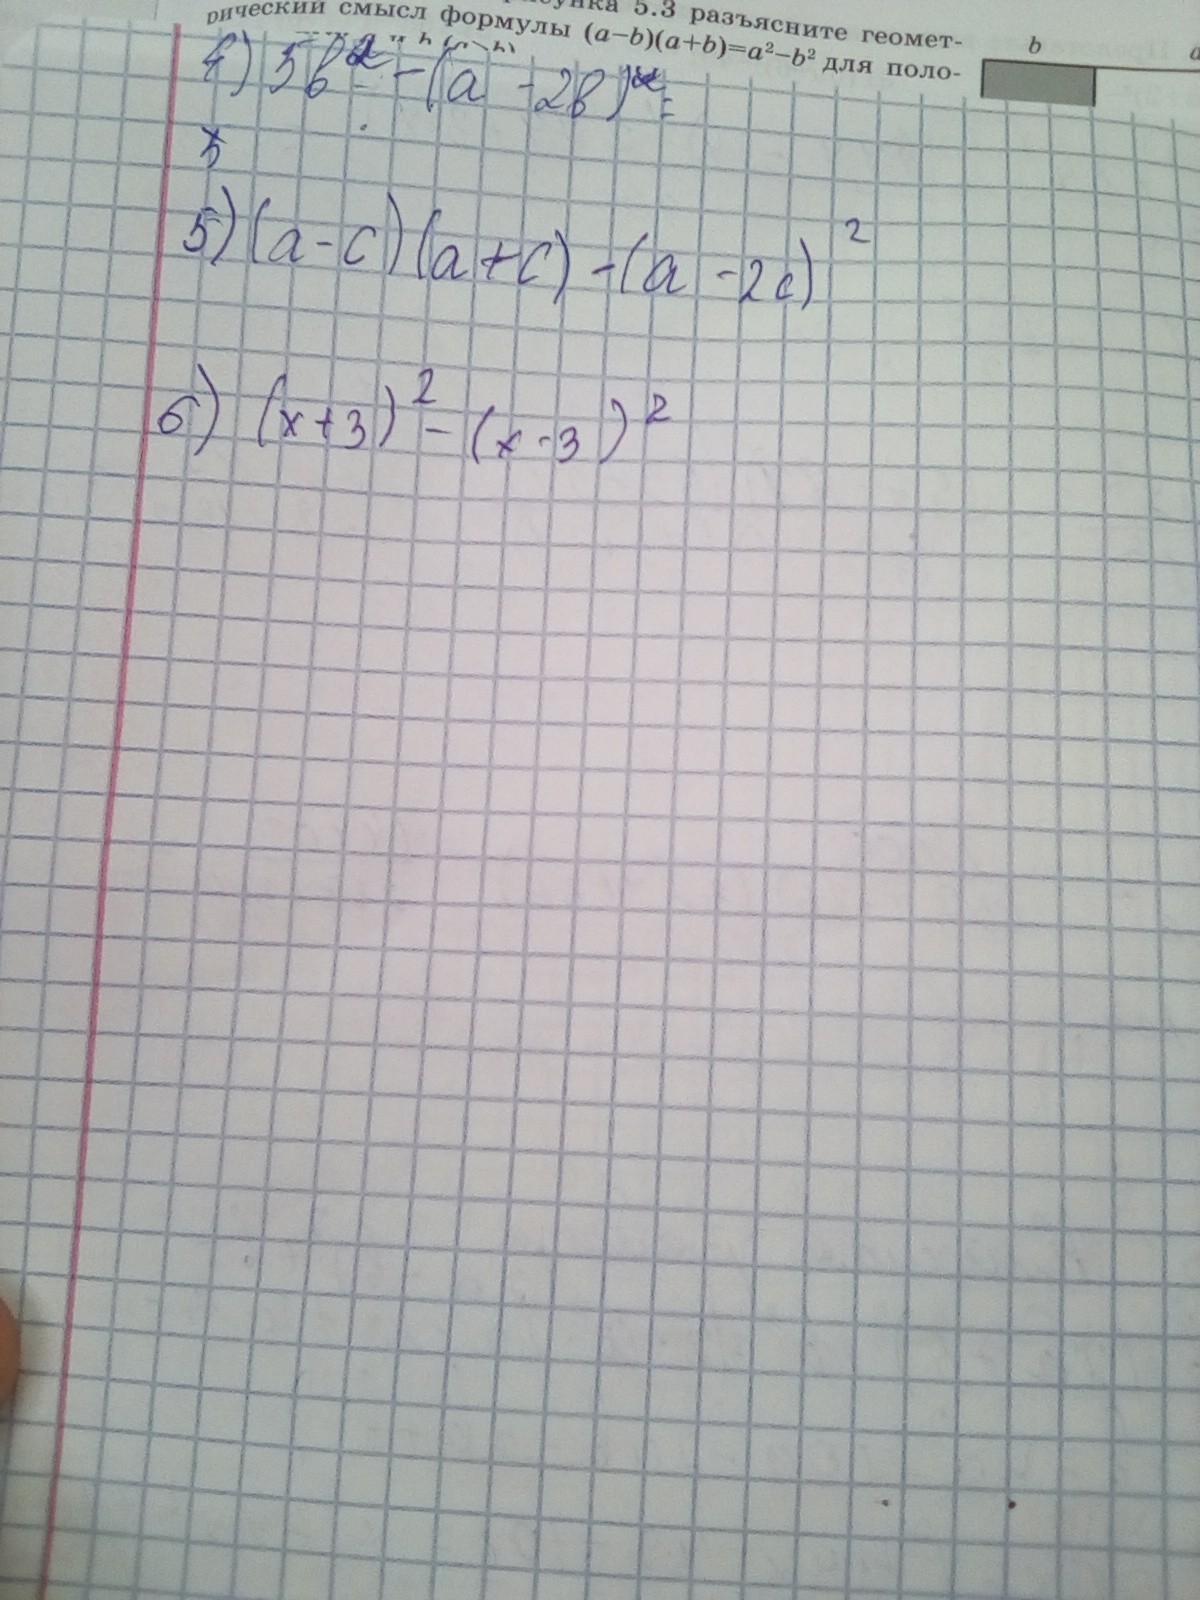 5.3 разъясните геомет-
рический смысл формулы (a−b)(a+b)=a²−b² для поло-
b
a
4) 5b² - (a - 2b)² =
5) (a - c)(a + c) - (a - 2c)²
6) (x + 3)² - (x - 3)²